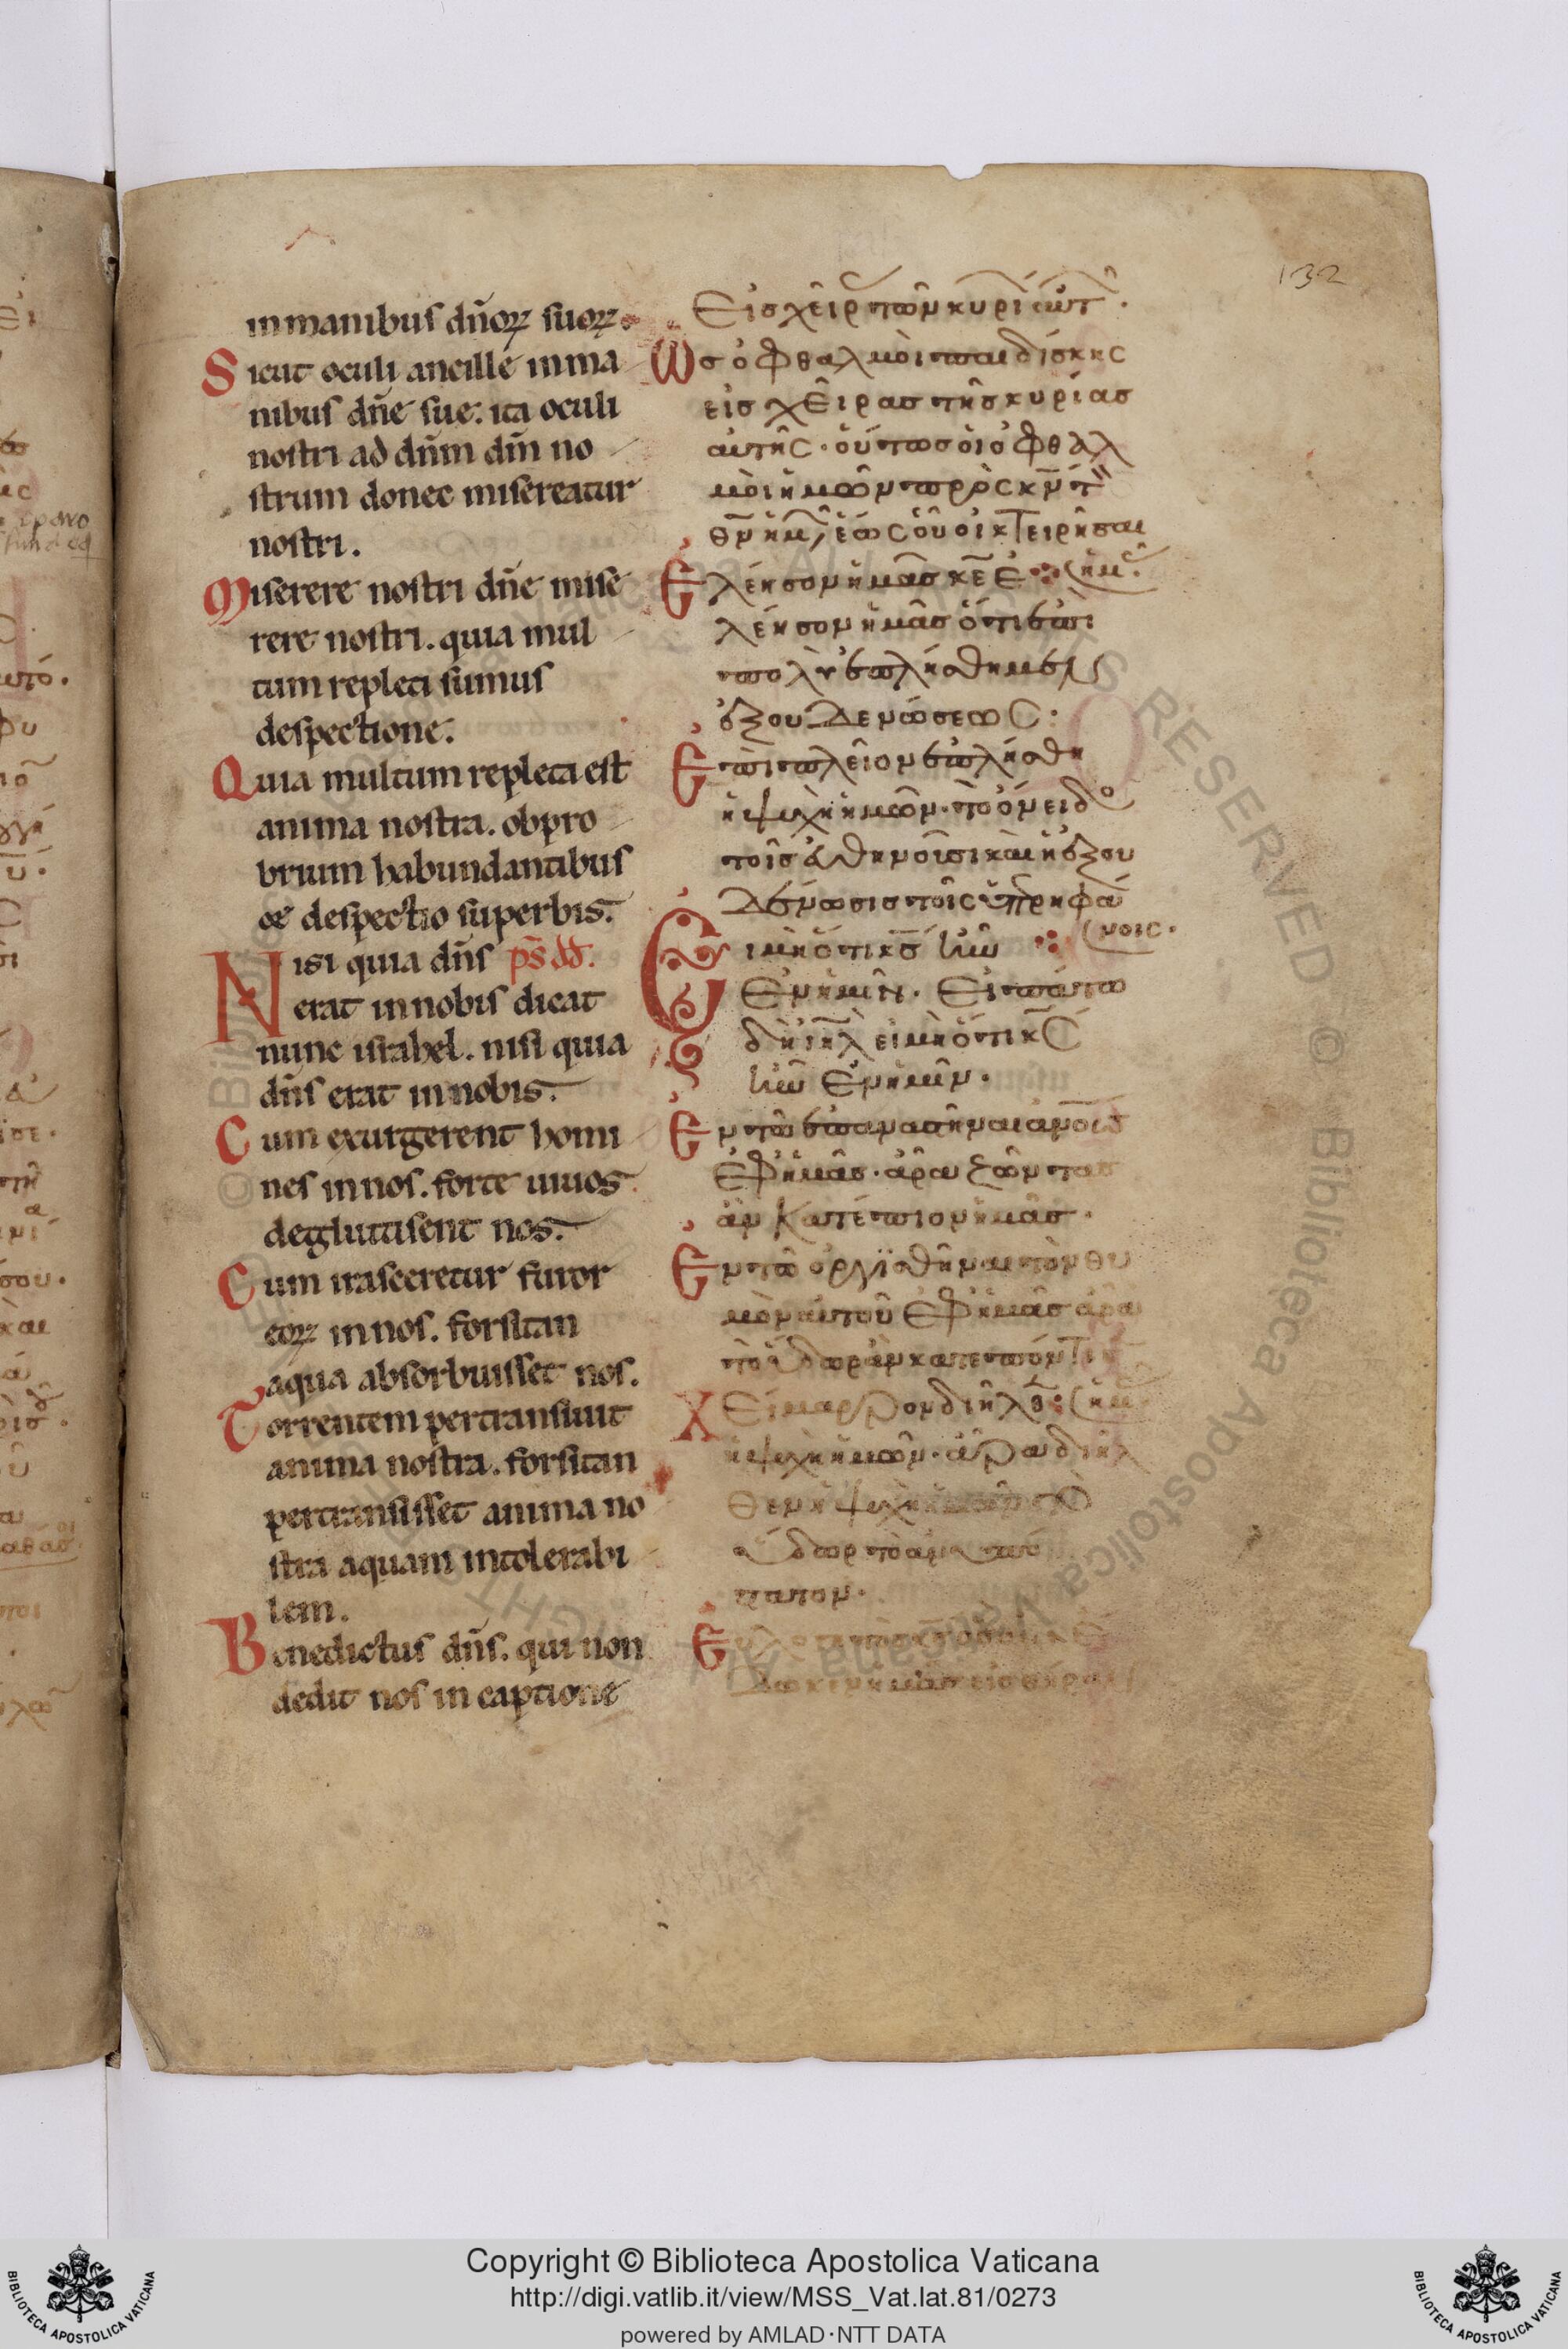 132
in manibus dn̄oꝝ suoꝝ.
Sicut oculi ancillę in ma
nibus dn̄e sue. ita oculi
nostri ad dn̄m dm̄ no
strum donec misereatur
nostri.
Miserere nostri dn̄e mise
rere nostri. quia mul
tum repleti sumus
despectione.
Quia multum repleta est
anima nostra. obpro
brium habundantibus
& despectio superbis.
Nisi quia dn̄s ps̄ dd.
erat in nobis dicat
nunc israhel. nisi quia
dn̄s erat in nobis.
Cum exurgerent homi
nes in nos. forte uiuos
deglutissent nos.
Cum irasceretur furor
eoꝝ in nos. forsitan
aqua absorbuisset nos.
Torrentem pertransiuit
anima nostra. forsitan
pertransisset anima no
stra aquam intolerabi
lem.
Benedictus dn̄s. qui non
dedit nos in captione
Εἰσ χεῖρ τῶν κυρί ἀυτ.
Ὡσ ὀφθαλμὸι παιδίσκης
εἰσ χεῖρασ τῆσ κυρίασ
αυτῆς. ὁύτωσ ὁι ὀφθαλ
μὸι ἡμῶν πρὸς κν̄ τ
θν̄ ἡμ, ἑώς ὁῦ οἰκτειρῆσαι
Ἐλέησον ἡμᾶσ κε̄ ἐ (ἡμ.
λέησον ἡμᾶσ ὅτι ἐπι
πολὺ ἐπλήσθημεν
ἐξουδενώσεως.
Ἐπὶ πλεῖον ἐπλήσθη
ἡ ψυχὴ ἡμῶν. τὸ ὄνειδο
τοῖσ ἐυθηνοῦσι καὶ ἡ ἐξου
δένωσισ τοῖς ὑπερηφά
(νοις.
Εἰ μὴ ὅτι κσ̄ ἦν
ἐν ἡμῖν. Εἰπάτω
δὴ ιη̄λ εἰ μὴ ὅτι κς̄
ἦν ἐν ἡμῖν.
Ἐν τῶ ἐπαναστῆναι ἀνο̄υσ
ἐφ ἡμᾶσ. ἄρα ζῶντασ
ἂν κατέπιον ἡμᾶσ.
Ἐν τῶ ὀργϊσθῆναι τὸν θυ
μὸν αυτοῦ ἐφ ἡμᾶσ ἄρα
τὸ ὕδωρ ἂν κατεπόντι
Χείμαρρον διῆλθ (ἡμ
ἡ ψυχὴ ἡμῶν. ἄρα διῆλ
θεν ἡ ψυχὴ ἡμῶν τὸ
ὕδωρ τὸ ἀνυπό
στατον.
Copyright © Biblioteca Apostolica Vaticana
http://digi.vatlib.it/view/MSS_Vat.lat.81/0273
powered by AMLAD·NTT DATA